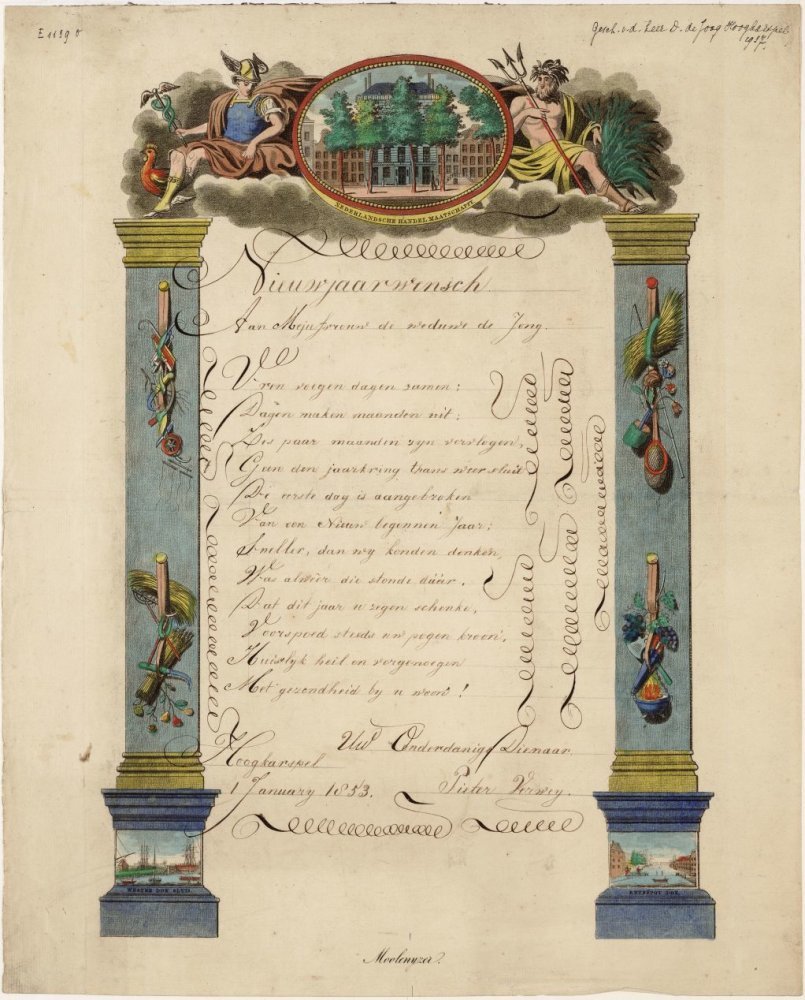 E 1139 b
Gesch. v. d. Heer D. de Jong Hoogkarspel
1937.
NEDERLANDSCHE HANDEL MAATSCHAPPY
Nieuwjaarwensch
Aan Mejufvrouw de weduwe de Jong.
Uren voegen dagen zamen;
Dagen maken maanden uit;
Zes paar maanden zyn vervlogen,
den jaarkring thans weer sluit
De eerste dag is aangebroken
Van een Nieuw begonnen Jaar;
Sneller, dan wy konden denken,
Was alwéér die stonde dáár.
Dat dit jaar u zegen schenke,
Voorspoed steeds uw pogen kroon',
Huislyk heil en vergenoegen
Met gezondheid by u woon'!
Uw Onderdanige Dienaar,
Hoogkarspel
1 January 1853. Pieter Verwey.
WESTER DOK SLUIS.
ENTREPOT DOK.
Moolenyzer.